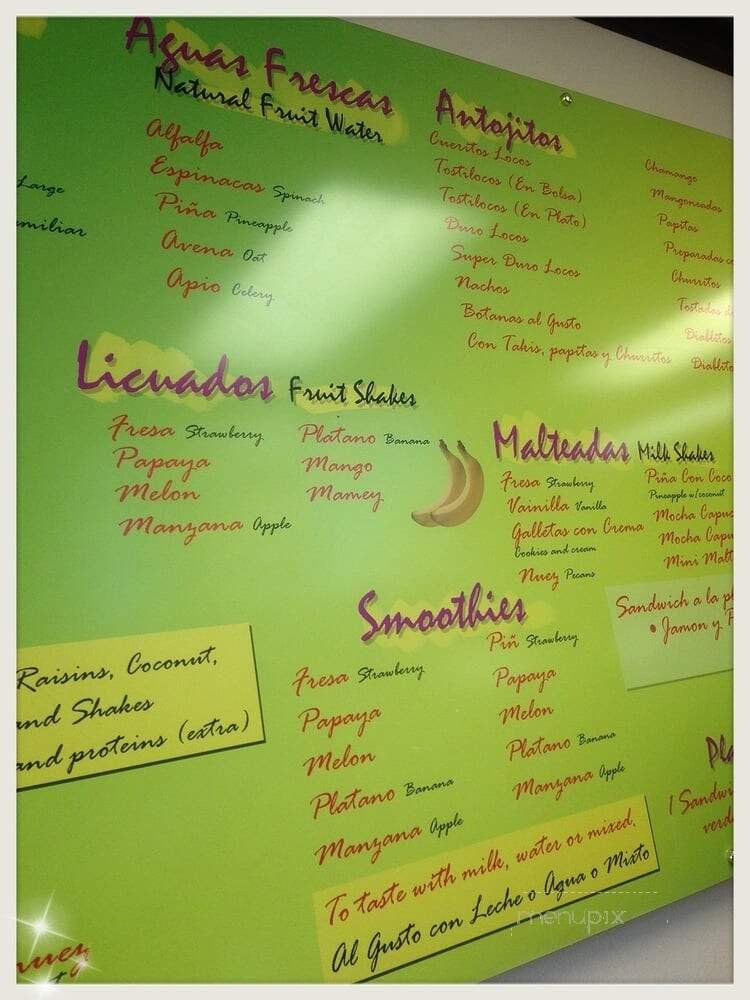 Large
Aguas Frescas
Natural Fruit Water
Alfalfa
Espinacas Spinach
Piña Pineapple
Avena Oat
Apio Celery
Antojitos
Cueritos Locos
Tostilocos (En Bolsa)
Tostilocos (En Plato)
Duro Locos
Super Duro Locos
Nachos
Botanas al Gusto
Con Takis, papitas y Churritos
Chamango
Mangoneadas
Papitas
Preparadas
Churritos
Tostadas
Diablitos
Licuados Fruit Shakes
Fresa Strawberry
Papaya
Melon
Manzana Apple
Platano Banana
Mango
Mamey
Malteadas Milk Shakes
Fresa Strawberry
Vainilla Vanilla
Galletas con Crema
Cookies and cream
Nuez Pecans
Piña Con Coco
Pineapple w/coconut
Mocha
Mocha
Mini
Sandwich a la
• Jamon y
Smoothies
Fresa Strawberry
Papaya
Melon
Platano Banana
Manzana Apple
Piñ Strawberry
Papaya
Melon
Platano Banana
Manzana Apple
Raisins, Coconut,
and Shakes
and proteins (extra)
To taste with milk, water or mixed.
Al Gusto con Leche o Agua o Mixto
1
menupix